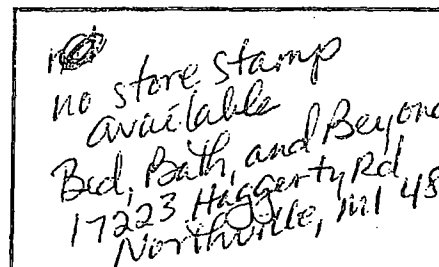 no store stamp
available
Bed, Bath, and Beyond
17223 Haggerty Rd
Northville, MI 48